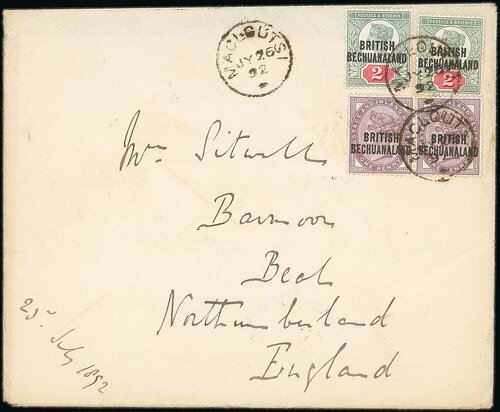 MACLOUTSI
JY 25
92
POSTAGE & REVENUE POSTAGE & REVENUE
BRITISH BRITISH
BECHUANALAND BECHUANALAND
2 2
MACLOUTSI
JY 25
92
BRITISH BRITISH
BECHUANALAND BECHUANALAND
MACLOUTSI
Mrs Sitwell
Barmoor
Beal
Northumberland
England
25. July 1892